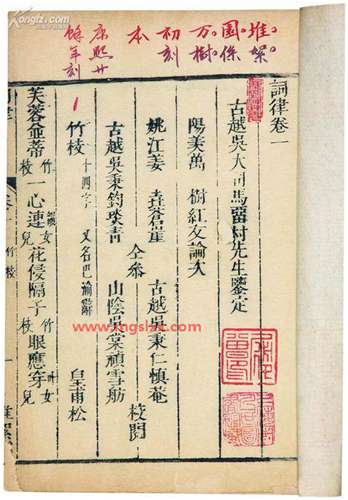 堆絮
園係
万樹
初刻
本
康熙廿
餘年刻
詞律卷一
古越吳大司馬留村先生鑒定
陽羨萬 樹紅友論次
姚江姜 垚蒼崖 古越吳秉仁慎菴
仝參 校閱
古越吳秉鈞琰青 山陰吳棠禎雪舫
竹枝 十四字 又名巴渝辭 皇甫松
芙蓉並蒂竹枝一心連女兒花侵隔子竹枝眼應穿女兒